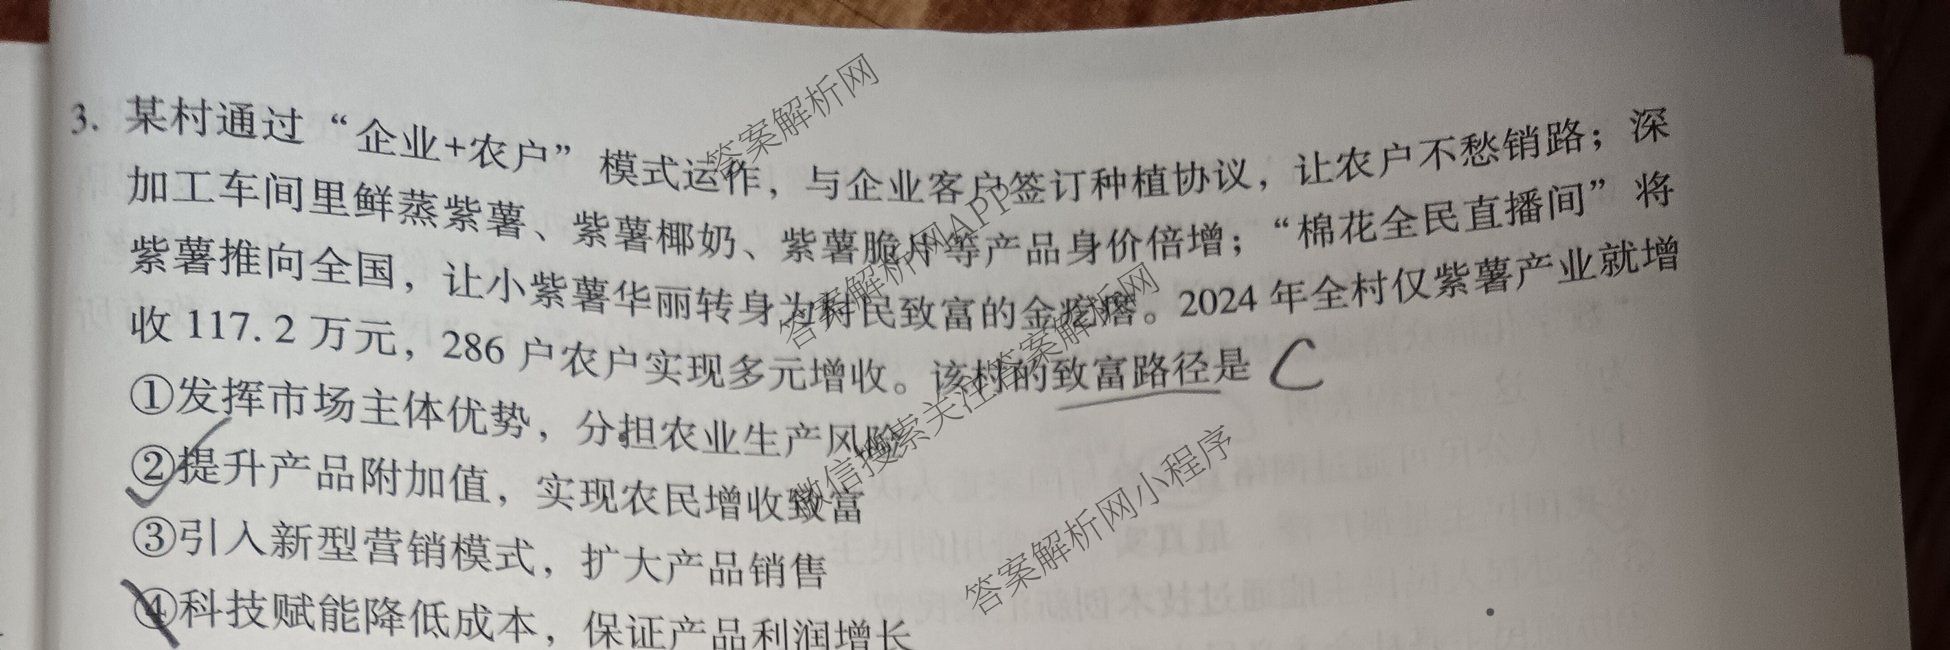 3. 某村通过“企业+农户”模式运作，与企业客户签订种植协议，让农户不愁销路；深
加工车间里鲜蒸紫薯、紫薯椰奶、紫薯脆片等产品身价倍增；“棉花全民直播间”将
紫薯推向全国，让小紫薯华丽转身为村民致富的金疙瘩。2024年全村仅紫薯产业就增
收117.2万元，286户农户实现多元增收。该村的致富路径是 C
①发挥市场主体优势，分担农业生产风险
②提升产品附加值，实现农民增收致富
③引入新型营销模式，扩大产品销售
④科技赋能降低成本，保证产品利润增长
答案解析网
答案解析网APP
微信搜索关注答案解析网
答案解析网小程序